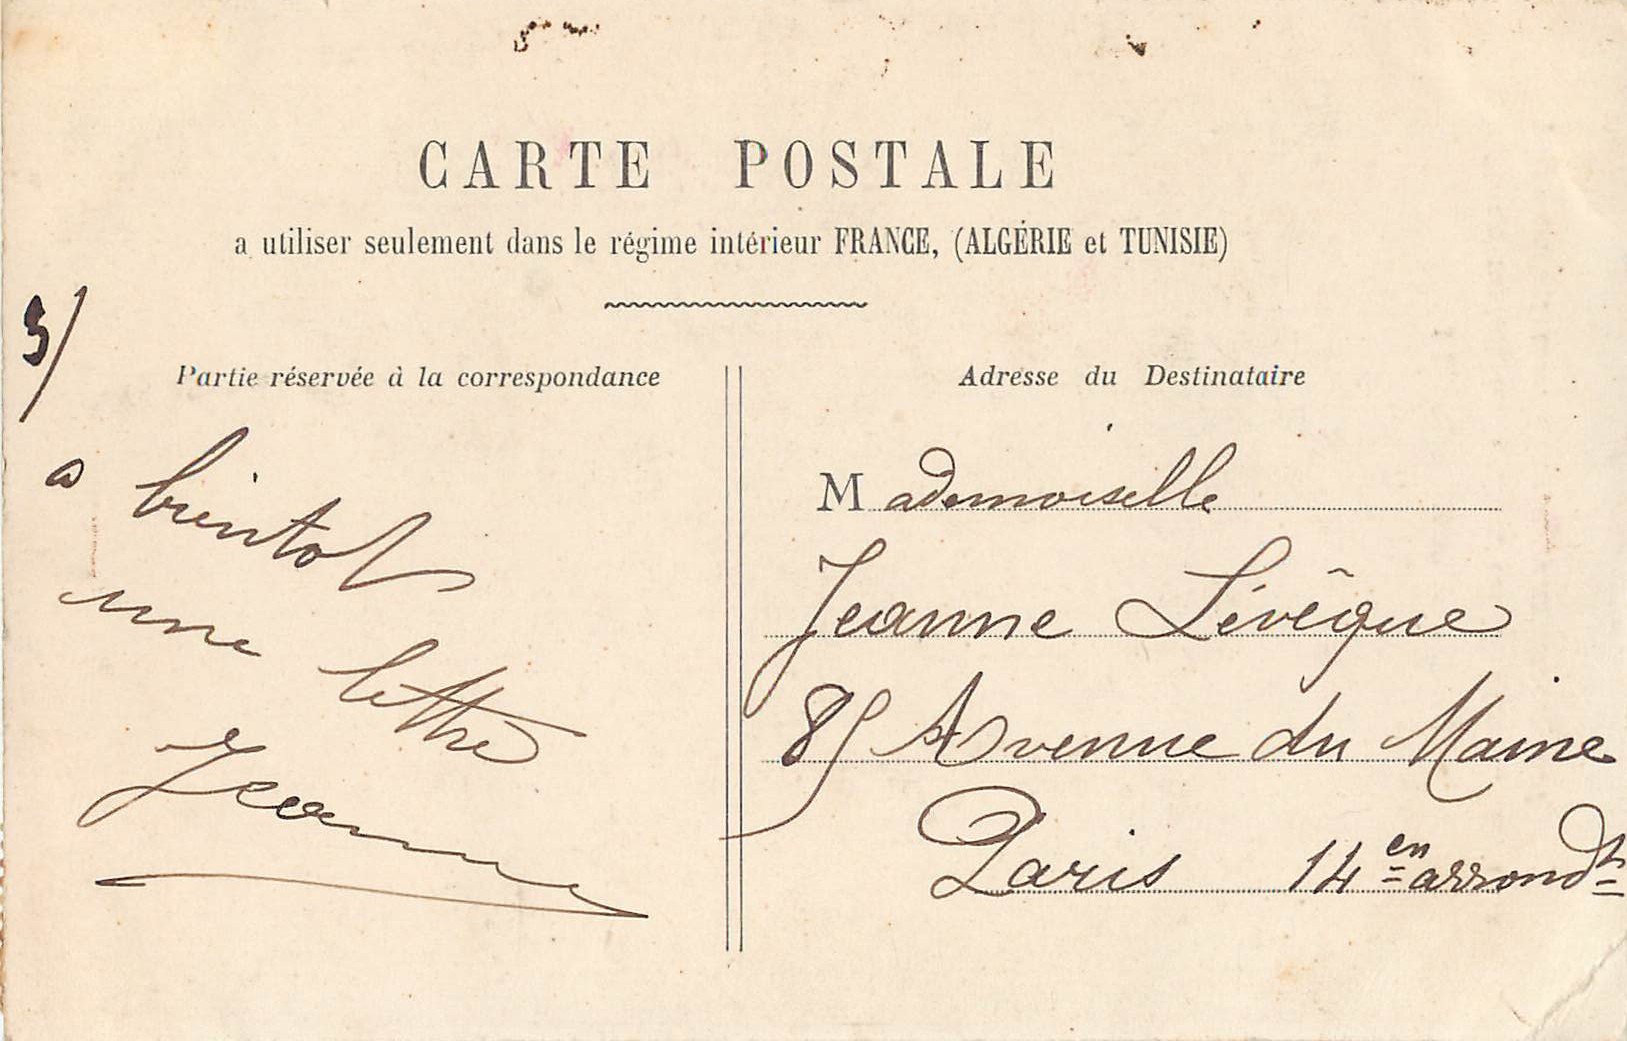 CARTE POSTALE
a utiliser seulement dans le régime intérieur FRANCE, (ALGÉRIE et TUNISIE)
5/
Partie réservée à la correspondance
a bientot
une lettre
Jeanne
Adresse du Destinataire
Mademoiselle
Jeanne Lévêque
85 Avenue du Maine
Paris 14en arrondt